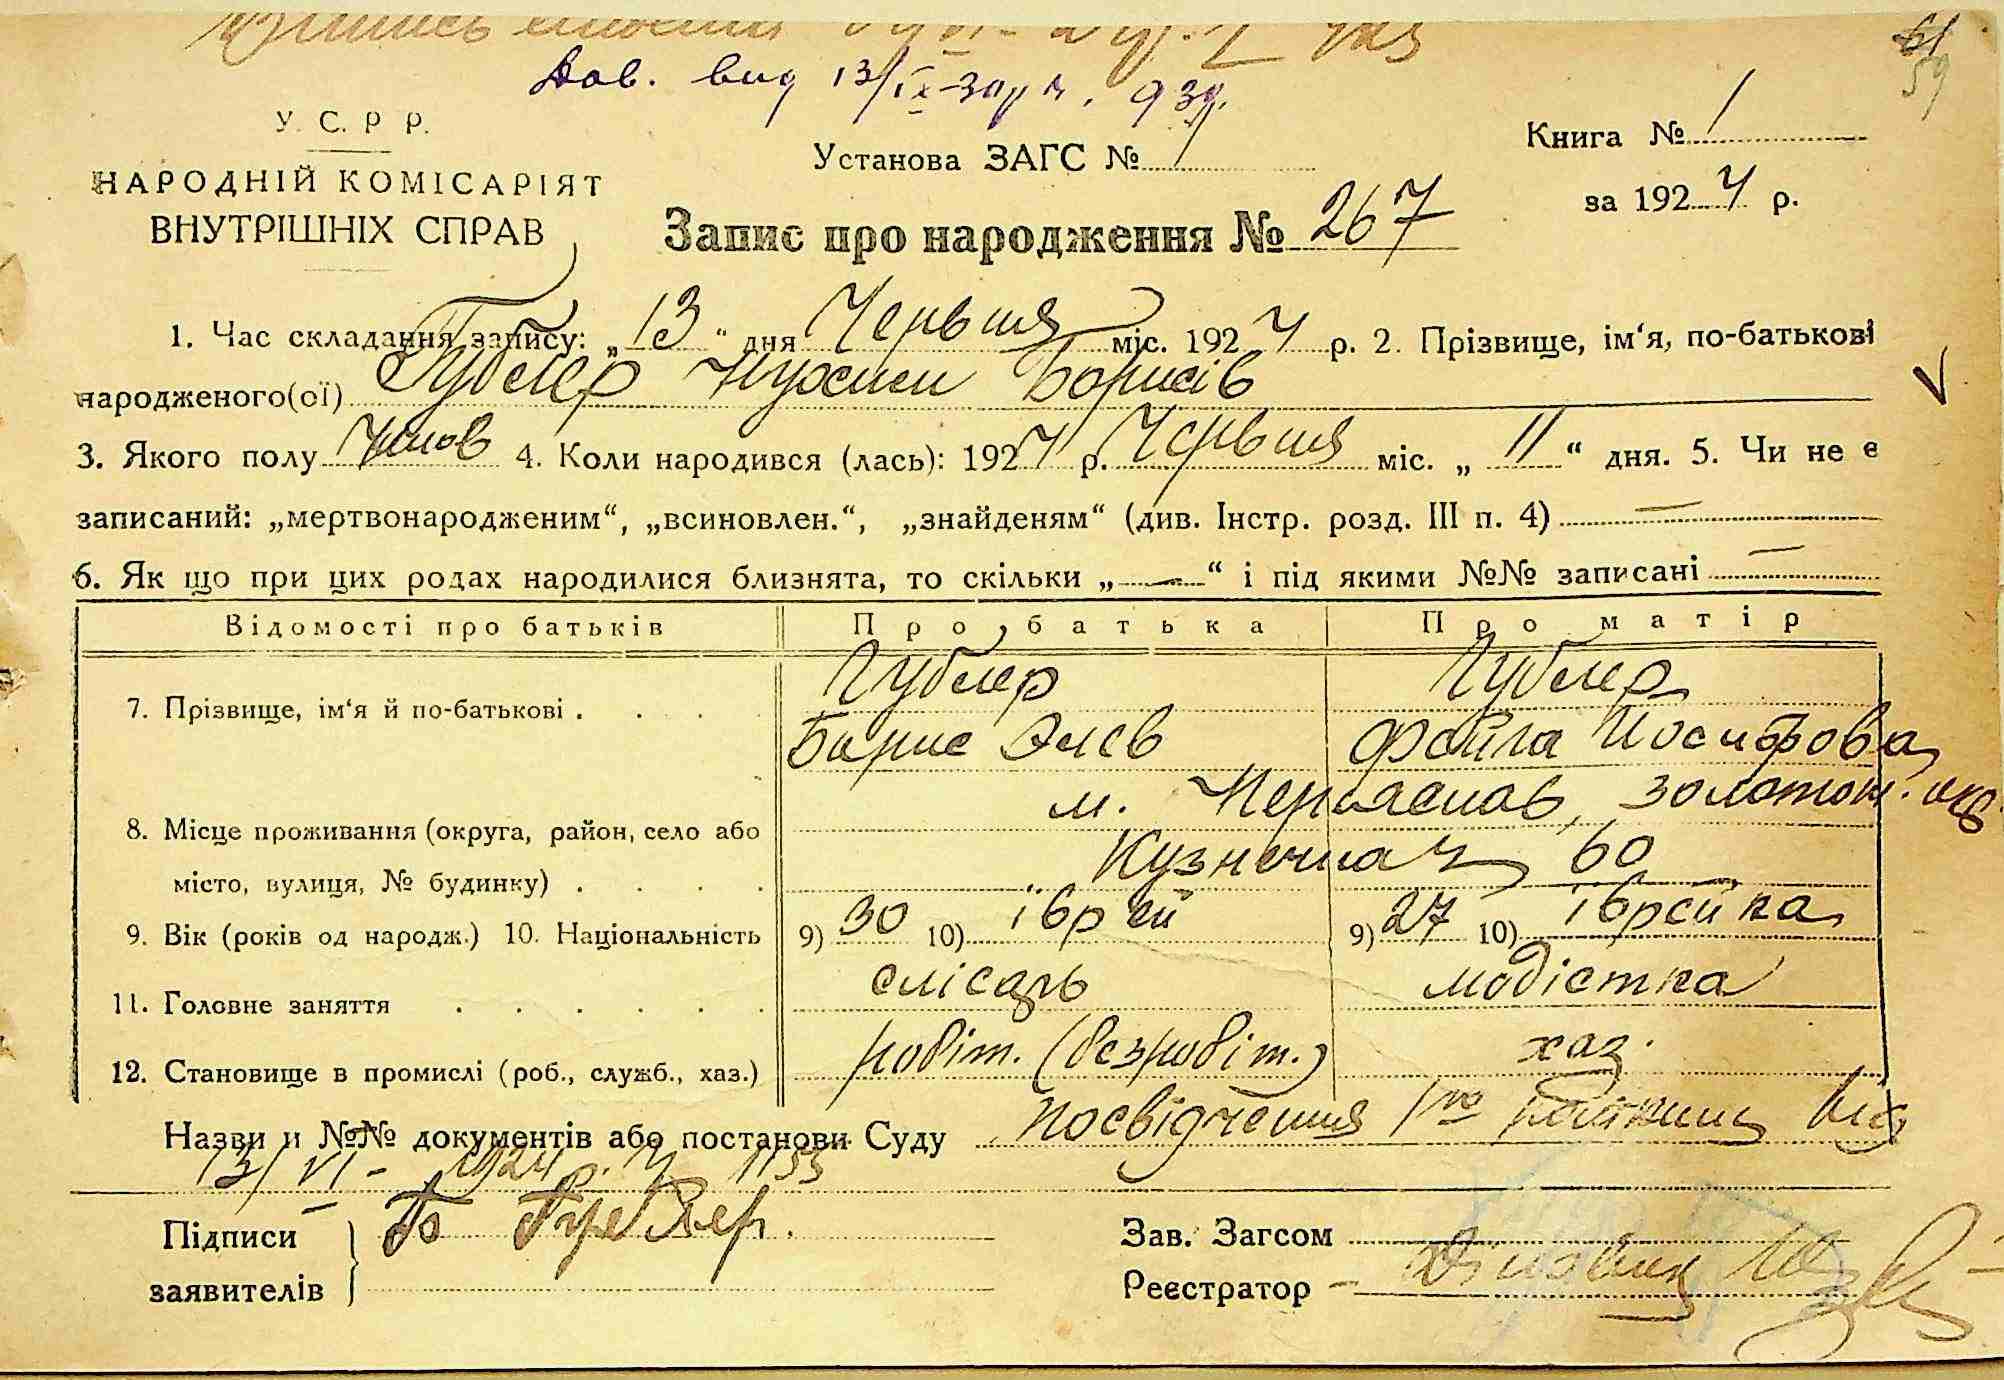 Дов. вид 13/IX-30 р. 
61
59
У. С. Р. Р.
НАРОДНІЙ КОМІСАРІЯТ
ВНУТРІШНІХ СПРАВ
Установа ЗАГС №
Книга № 1
за 1924 р.
Запис про народження № 267
1. Час складання запису: „13“ дня Червня міс. 1924 р. 2. Прізвище, ім‘я, по-батькові
народженого(ої) Гублер Нухим Борисів
3. Якого полу чолов 4. Коли народився (лась): 1924 р. Червня міс. „11“ дня. 5. Чи не є
записаний: „мертвонародженим“, „всиновлен.“, „знайденям“ (див. Інстр. розд. III п. 4) —
6. Як що при цих родах народилися близнята, то скільки „—“ і під якими №№ записані —
Відомості про батьків Про батька Про матір
Гублер Гублер
7. Прізвище, ім‘я й по-батькові . . . .
Борис Элев Файга Йосифова
м. Переяслав, Золотон. окр.
8. Місце проживання (округа, район, село або
місто, вулиця, № будинку) . . . . Кузнечна 60
9. Вік (років од народж.) 10. Національність 9) 30 10) іврей 9) 27 10) іврейка
11. Головне заняття . . . . . . слісарь модістка
12. Становище в промислі (роб., служб., хаз.) робіт. (безробіт.) хаз.
Назви й №№ документів або постанови Суду посвідчення 1го від
13/VI - 1924 р. № 1153
Підписи заявителів Б Гублер.
Зав. Загсом
Реєстратор —